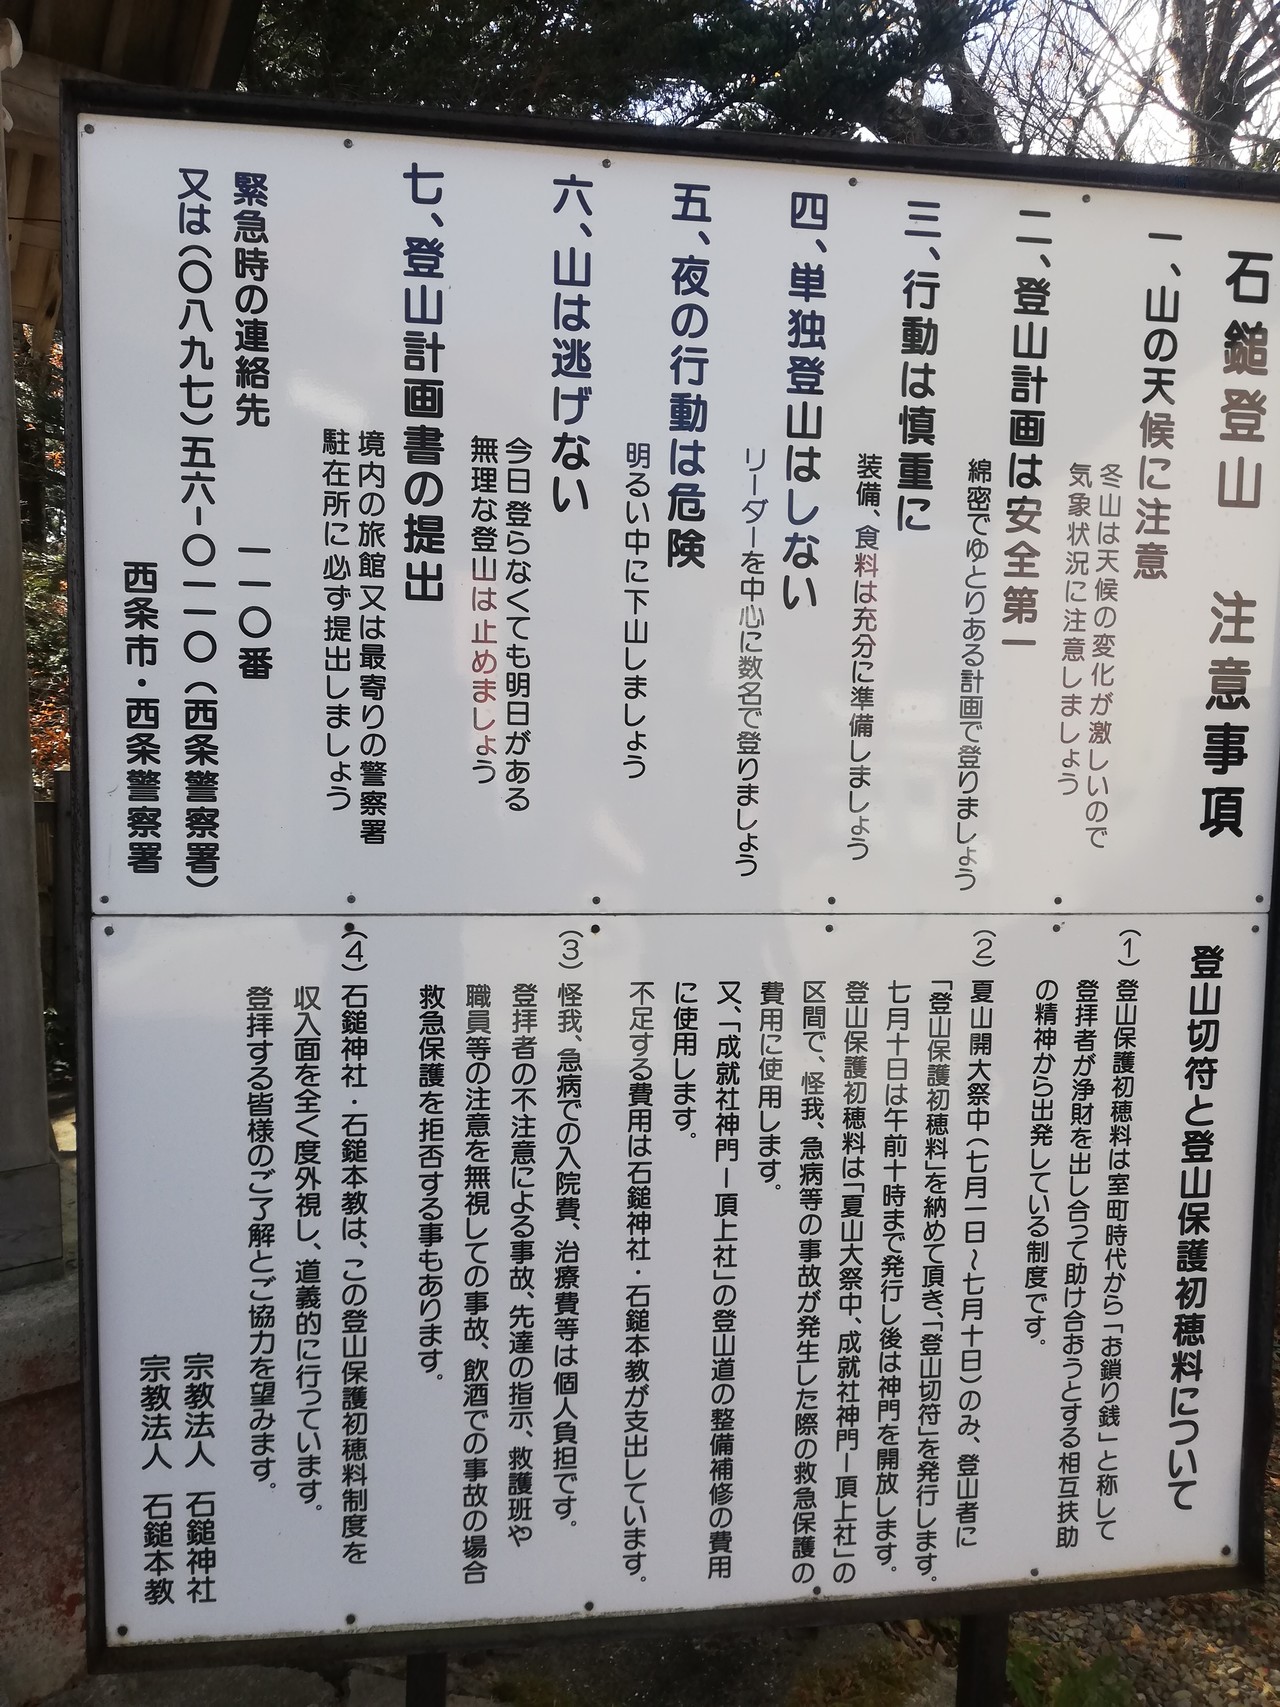 石鎚登山　注意事項
一、山の天候に注意
冬山は天候の変化が激しいので
気象状況に注意しましょう
二、登山計画は安全第一
綿密でゆとりある計画で登りましょう
三、行動は慎重に
装備、食料は充分に準備しましょう
四、単独登山はしない
リーダーを中心に数名で登りましょう
五、夜の行動は危険
明るい中に下山しましょう
六、山は逃げない
今日登らなくても明日がある
無理な登山は止めましょう
七、登山計画書の提出
境内の旅館又は最寄りの警察署
駐在所に必ず提出しましょう
緊急時の連絡先　一一〇番
又は(〇八九七)五六ー〇一一〇(西条警察署)
西条市・西条警察署
登山切符と登山保護初穂料について
(1)登山保護初穂料は室町時代から「お鎖り銭」と称して
登拝者が浄財を出し合って助け合おうとする相互扶助
の精神から出発している制度です。
(2)夏山開大祭中(七月一日～七月十日)のみ、登山者に
「登山保護初穂料」を納めて頂き、「登山切符」を発行します。
七月十日は午前十時まで発行し後は神門を開放します。
登山保護初穂料は「夏山大祭中、成就社神門ー頂上社」の
区間で、怪我、急病等の事故が発生した際の救急保護の
費用に使用します。
又、「成就社神門ー頂上社」の登山道の整備補修の費用
に使用します。
不足する費用は石鎚神社・石鎚本教が支出しています。
(3)怪我、急病での入院費、治療費等は個人負担です。
登拝者の不注意による事故、先達の指示、救護班や
職員等の注意を無視しての事故、飲酒での事故の場合
救急保護を拒否する事もあります。
(4)石鎚神社・石鎚本教は、この登山保護初穂料制度を
収入面を全く度外視し、道義的に行っています。
登拝する皆様のご了解とご協力を望みます。
宗教法人　石鎚神社
宗教法人　石鎚本教